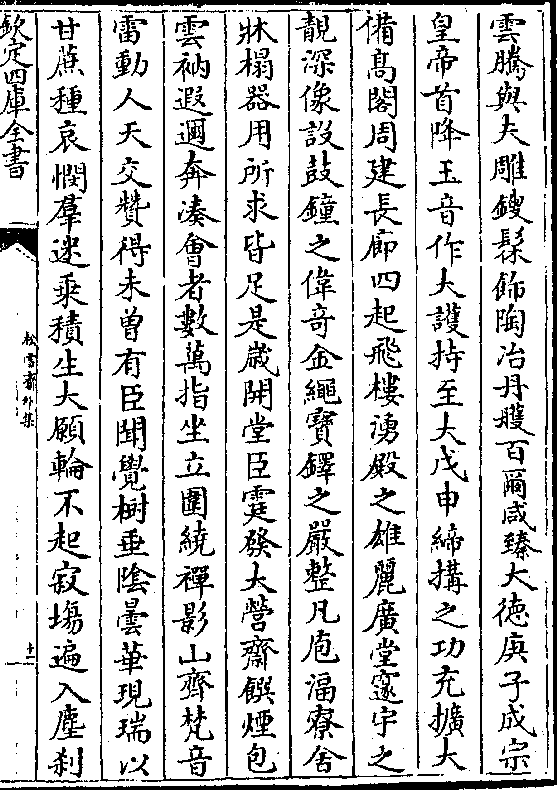 雲騰與夫雕鎪髹飾陶冶丹雘百爾咸臻大德庚子成宗
皇帝首降玉音作大護持至大戊申締搆之功充擴大
備髙閣周建長廊四起飛樓湧殿之雄麗廣堂邃宇之
靚深像設鼓鐘之偉奇金繩寶鐸之嚴整凡庖湢寮舍
牀榻器用所求皆足是歲開堂臣霆發大營齋饌煙包
雲衲遐邇奔湊會者數萬指坐立圍繞禪影山齊梵音
雷動人天交贊得未曽有臣聞覺樹垂陰曇華現瑞以
甘蔗種哀憫羣迷乗積生大願輪不起寂塲遍入塵刹
欽定四庫全書
松雪齋外集
十二